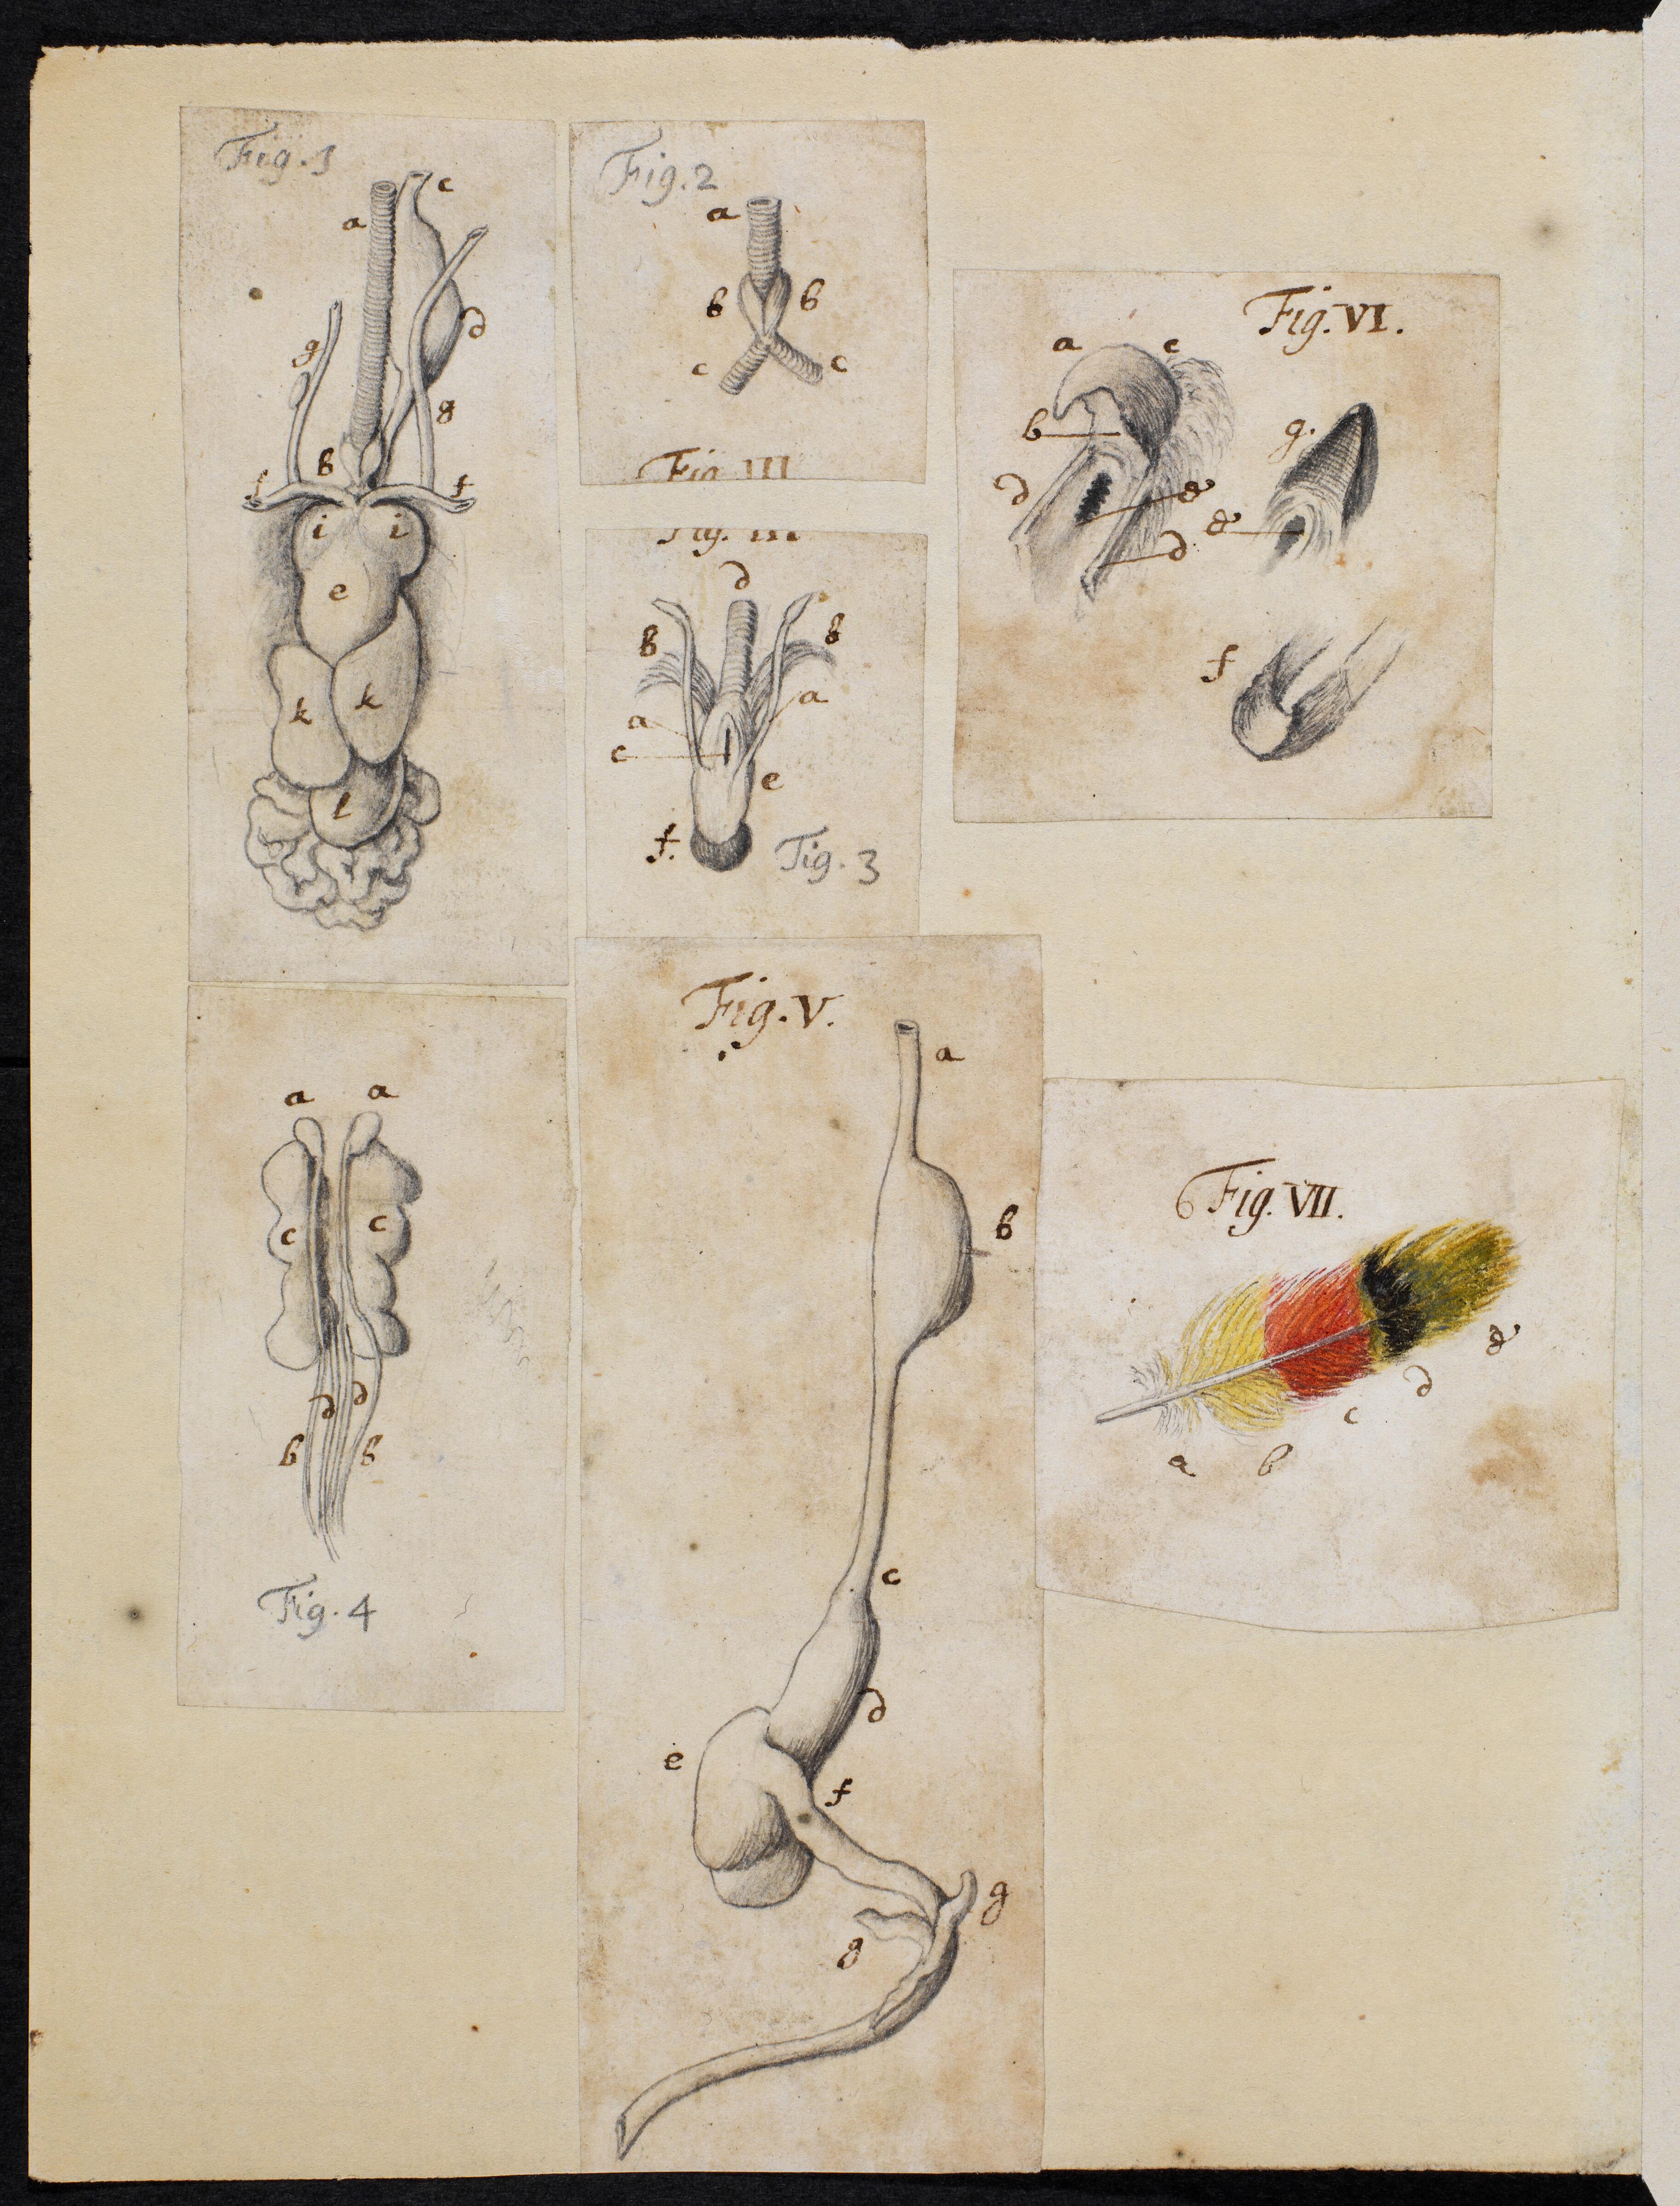 Fig. 1
c
a
d
g
g
b
f
f
i
i
e
k
k
l
Fig. 2
a
b
b
c
c
Fig. III
Fig. III
d
b
b
a
a
c
e
f.
Fig. 3
Fig. VI.
a
c
b
g.
d
e
e
d
f
a
a
c
c
d
d
b
b
Fig. 4
Fig. V.
a
b
c
d
e
f
g
g
Fig. VII.
e
d
c
a
b